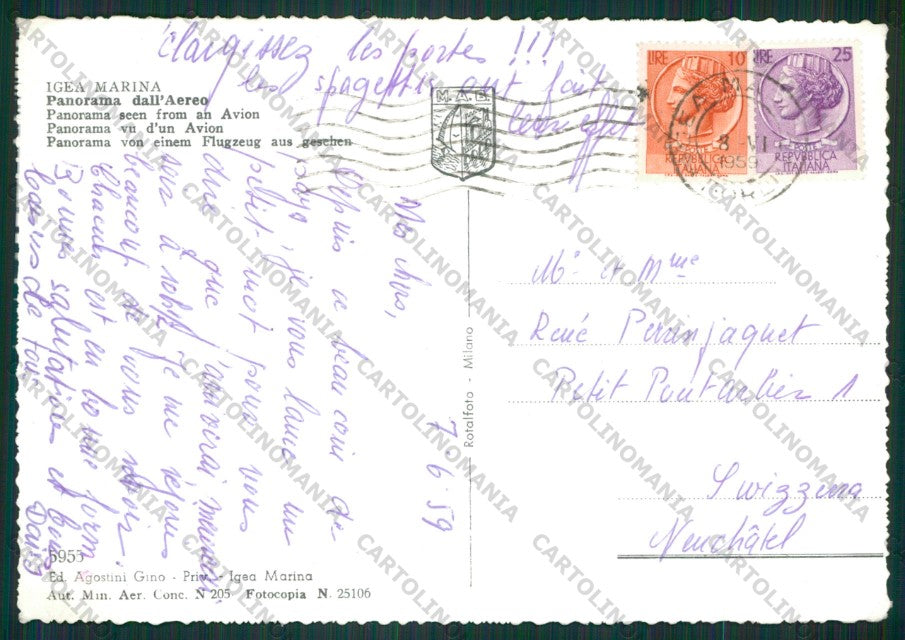 élargissez les porte !!!
les spagettis ont fait
IGEA MARINA
Panorama dall'Aereo
Panorama seen from an Avion
Panorama vu d'un Avion
Panorama von einem Flugzeug aus gesehen
M.A.B.
LIRE 10
REPVBBLICA
ITALIANA
LIRE 25
REPVBBLICA
ITALIANA
8 - VI
1959
7.6.59
Depuis ce beau coin de
je vous lance un
petit mot pour vous
dire que
sera à
beaucoup de vous revoir.
Chacun est en bonne form
Bonnes salutations et bons
baisers de tous
Mr et Mme
René Perrinjaquet
Petit Pontarlier 1
Swizzera
Neuchâtel
Rotalfoto - Milano
5955
Ed. Agostini Gino - Priv. - Igea Marina
Aut. Min. Aer. Conc. N 205 Fotocopia N. 25106
CARTOLINOMANIA